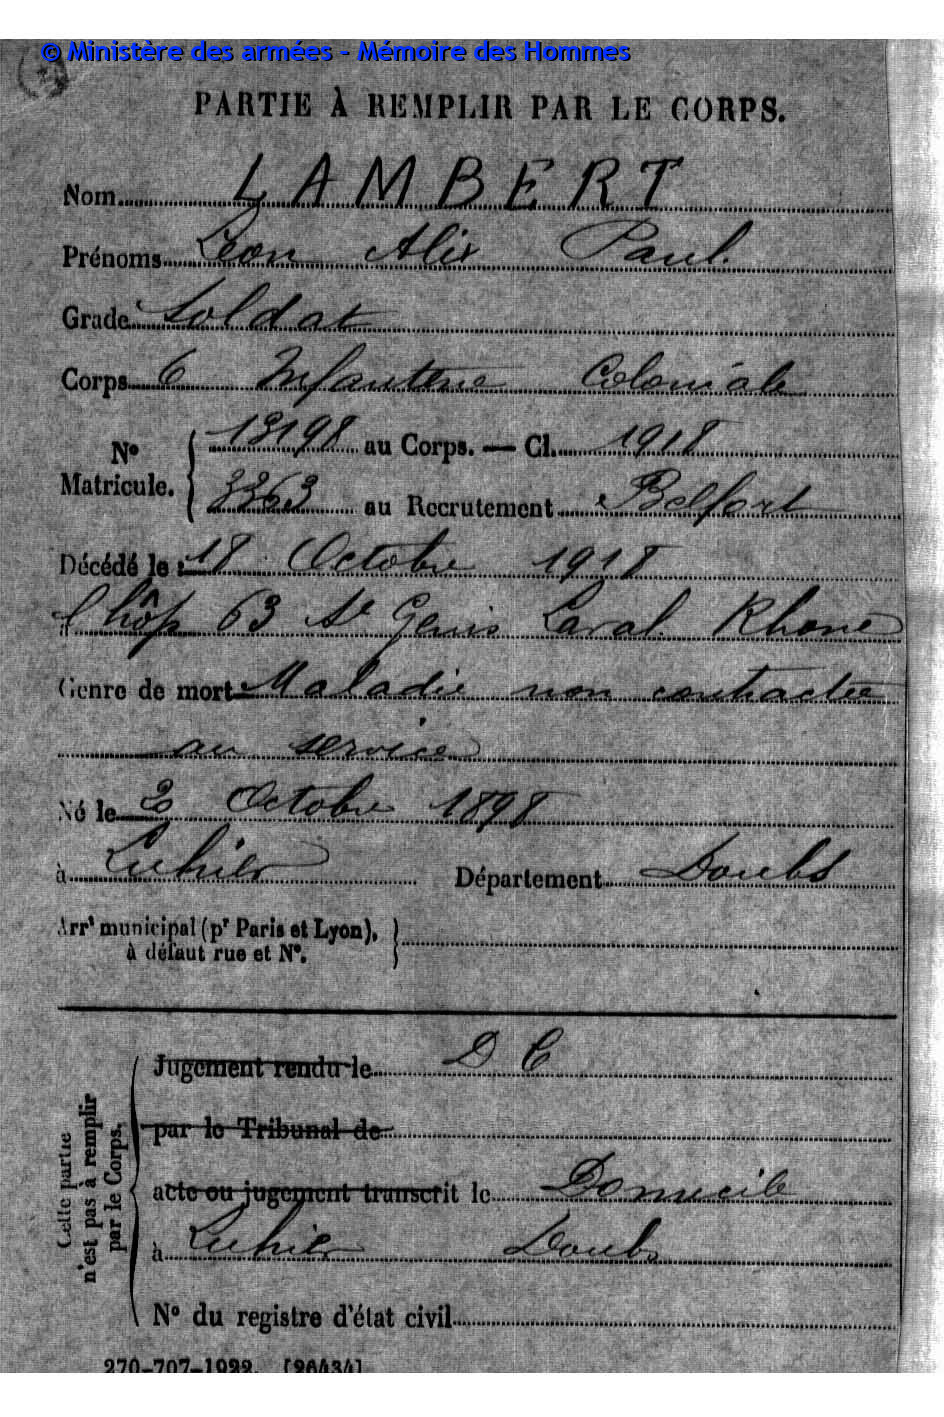 © Ministère des armées - Mémoire des Hommes
PARTIE À REMPLIR PAR LE CORPS.
Nom LAMBERT
Prénoms Léon Alix Paul.
Grade Soldat
Corps 6 Infanterie Coloniale
N° Matricule. { 13198 au Corps. — Cl. 1918
3363 au Recrutement Belfort
Décédé le : 18 Octobre 1918
à l'hôp 63 St Genis Laval. Rhone
Genre de mort Maladie non contractée
au service
Né le 2 Octobre 1898
à Luhier Département Doubs
Arrt municipal (pr Paris et Lyon),
à défaut rue et N°.
Cette partie n'est pas à remplir par le Corps.
Jugement rendu le D C
par le Tribunal de
acte ou jugement transcrit le Domicile
à Luhier Doubs
N° du registre d'état civil
270-707-1922. [26434]